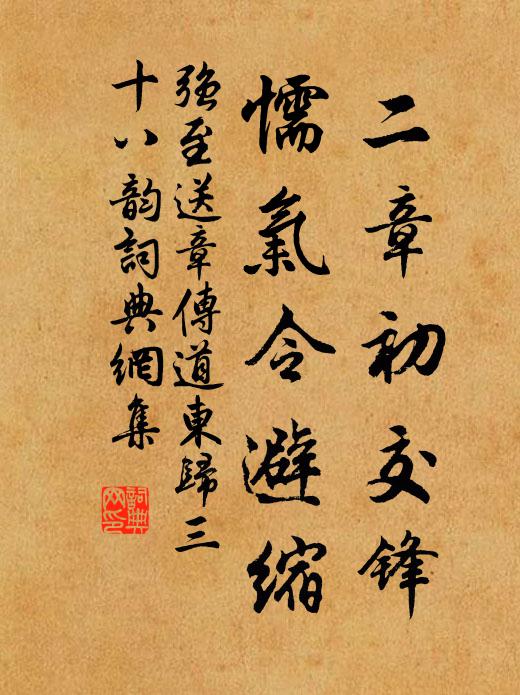 二章初交锋
懦氣合避縮
强至送章傳道東歸三
十八韵詞典網集
詞典网印